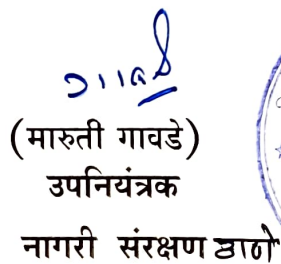 (मारुती गावडे)
उपनियंत्रक
नागरी संरक्षण ठाणे